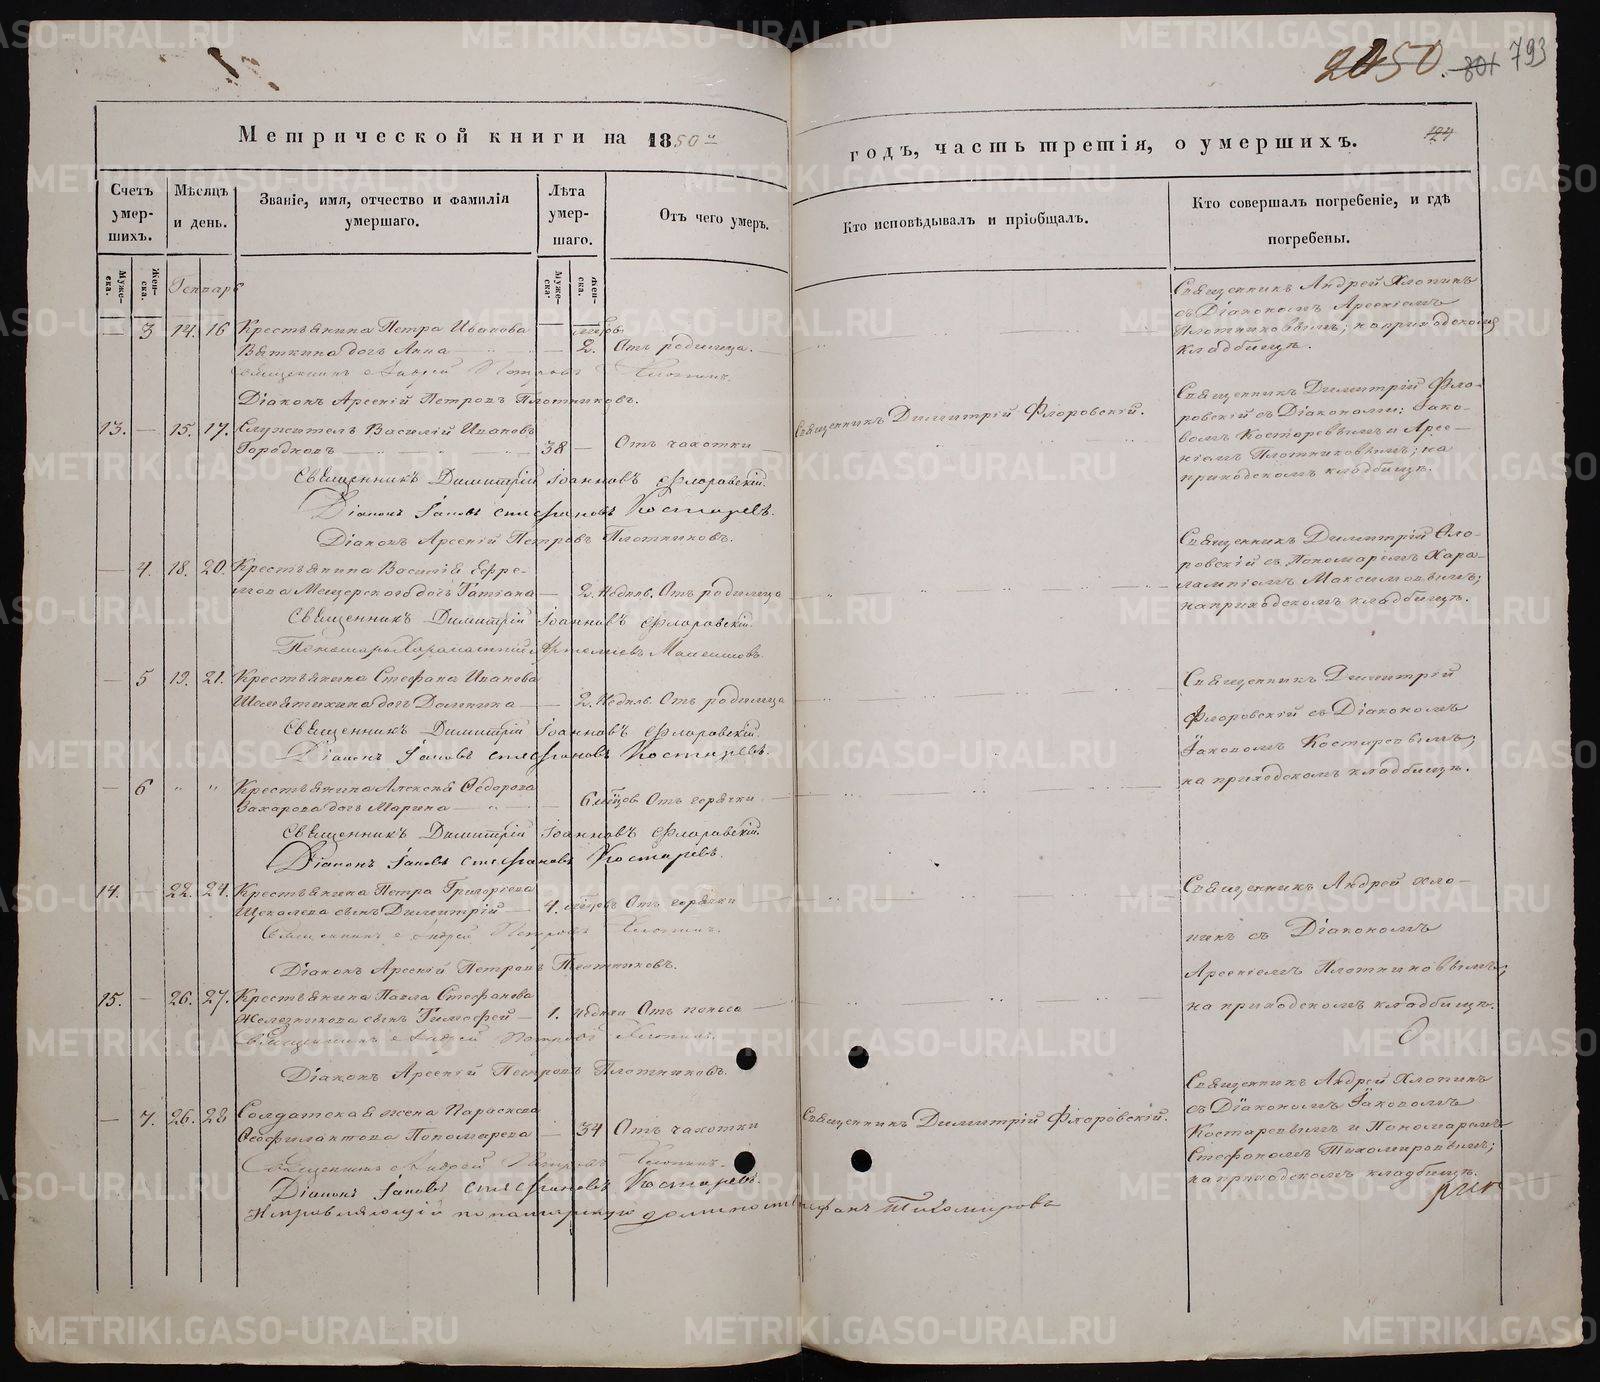 2450. 801 793
Метрической книги на 1850й
годъ, часть третія, о умершихъ.
124
Счетъ умер-шихъ.
Мѣсяцъ и день.
Званіе, имя, отчество и фамилія умершаго.
Лѣта умер-шаго.
Отъ чего умеръ.
Кто исповѣдывалъ и пріобщалъ.
Кто совершалъ погребеніе, и гдѣ погребены.
Муже-ска.
Жен-ска.
Муже-ска.
Жен-ска.
Генварь
— 3 14. 16 Крестьянина Петра Иванова
Вяткина дочь Анна — 2. Отъ родимца.
Священникъ Андрей Петровъ Хлопинъ.
Діаконъ Арсеній Петровъ Плотниковъ.
Священникъ Андрей Хлопинъ
съ Діакономъ Арсеніемъ
Плотниковымъ; на приходскомъ
кладбищѣ.
13. — 15. 17. Служитель Василій Ивановъ
38 — Отъ чахотки
Священникъ Димитрій Іоанновъ Флоровскій.
Діаконъ Іаковъ Стефановъ Костаревъ.
Діаконъ Арсеній Петровъ Плотниковъ.
Священникъ Димитрій Флоровскій.
Священникъ Димитрій Фло-
ровскій съ Діаконами: Іако-
вомъ Костаревымъ и Арсе-
ніемъ Плотниковымъ; на
приходскомъ кладбищѣ.
— 4. 18. 20. Крестьянина Василія Ефре-
мова Мещерскаго дочь Татіана — 2. Недѣль. Отъ родимца
Священникъ Димитрій Іоанновъ Флоровскій.
Пономарь Харалампій Максимовъ.
Священникъ Димитрій Фло-
ровскій съ Пономаремъ Хара-
лампіемъ Максимовымъ;
на приходскомъ кладбищѣ.
— 5 19. 21. Крестьянина Стефана Иванова
дочь Домника — 2. Недѣль. Отъ родимца
Священникъ Димитрій Іоанновъ Флоровскій.
Діаконъ Іаковъ Стефановъ Костаревъ.
Священникъ Димитрій
Флоровскій съ Діакономъ
Іаковомъ Костаревымъ;
на приходскомъ кладбищѣ.
— 6 " " Крестьянина Алексѣя Федорова
Захарова дочь Марина — 6 мѣсяцовъ Отъ горячки
Священникъ Димитрій Іоанновъ Флоровскій.
Діаконъ Іаковъ Стефановъ Костаревъ.
14. — 22. 24. Крестьянина Петра Григорьева
Щекалева сынъ Димитрій — 4. Отъ горячки
Священникъ Андрей Петровъ Хлопинъ.
Діаконъ Арсеній Петровъ Плотниковъ.
Священникъ Андрей Хло-
пинъ съ Діакономъ
Арсеніемъ Плотниковымъ;
на приходскомъ кладбищѣ.
15. — 26. 27. Крестьянина Павла Стефанова
Железникова сынъ Тимофей — 1. недѣли Отъ поноса —
Священникъ Андрей Петровъ Хлопинъ.
Діаконъ Арсеній Петровъ Плотниковъ.
— 7. 26. 28 Солдатская жена Параскева
Феофилактова Пономарева — 34 Отъ чахотки
Священникъ Андрей Петровъ Хлопинъ.
Діаконъ Іаковъ Стефановъ Костаревъ.
Исправляющій пономарскую должность Стефанъ Тихомировъ
Священникъ Димитрій Флоровскій.
Священникъ Андрей Хлопинъ
съ Діакономъ Іаковомъ
Костаревымъ и Пономаремъ
Стефаномъ Тихомировымъ;
на приходскомъ кладбищѣ.
METRIKI.GASO-URAL.RU